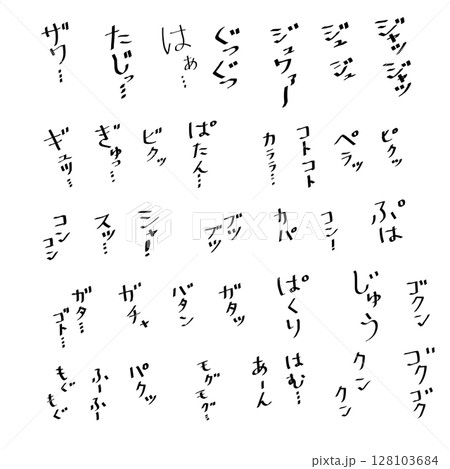 ジャッ
ジャッ
ジュ
ジュ
ジュワァー
ぐっぐっ
はぁ…
たじっ…
ザワ…
ピクッ
ペラッ
コトコト
カララ…
ぱたん…
ビクッ
ぎゅっ…
ギュッ…
ぷは
コシー
カパ
ブッ
ブッ
シャー!
スッ…
コン
コン
ゴクン
じゅう
ぱくり
ガタッ
バタン
ガチャ
ガタ…
ゴト…
ゴクゴク
クン
クン
はむ…
あーん
モグ
モグ…
パクッ
ふーふー
もぐ
もぐ
PIXTA
pixta.jp - 128103684